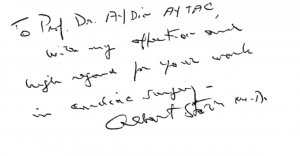 To Prof. Dr. AYDIN AYTAC,
with my affection and
high regard for your work
in cardiac surgery -
Albert Starr M.D.